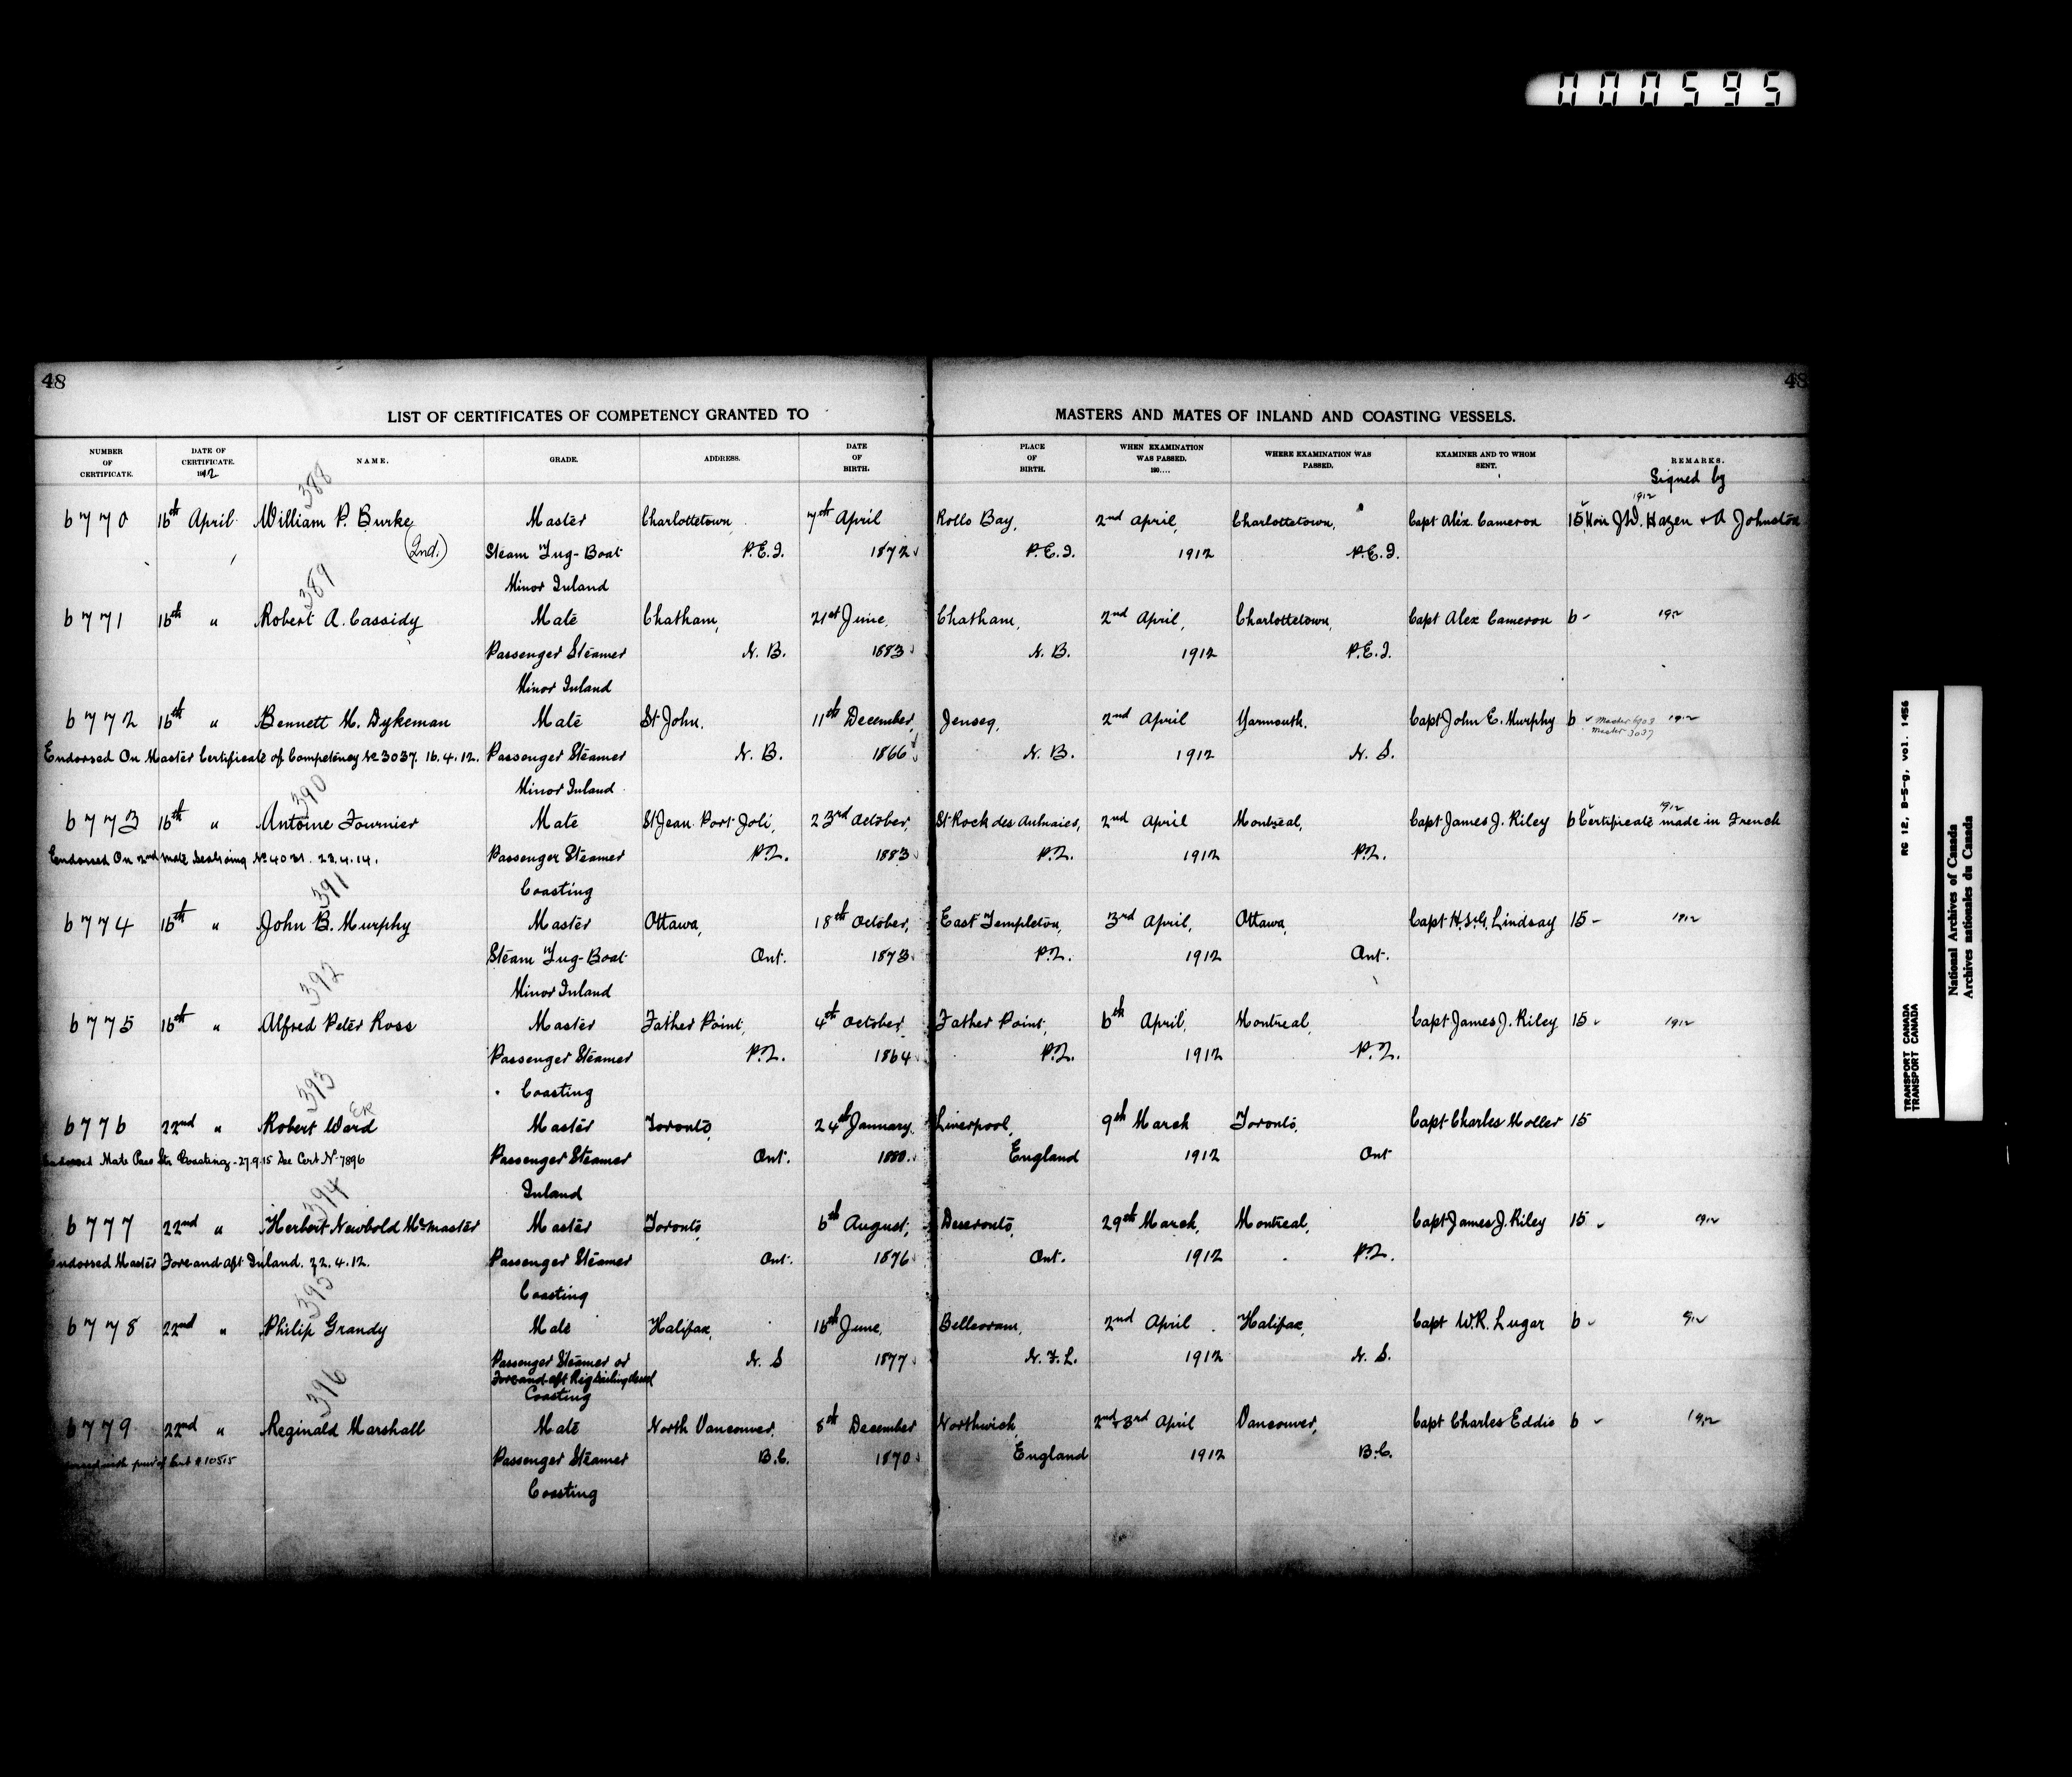 000595
48
48
LIST OF CERTIFICATES OF COMPETENCY GRANTED TO MASTERS AND MATES OF INLAND AND COASTING VESSELS.
NUMBER OF CERTIFICATE. DATE OF CERTIFICATE. 1912 NAME. GRADE. ADDRESS. DATE OF BIRTH. PLACE OF BIRTH. WHEN EXAMINATION WAS PASSED. 190.... WHERE EXAMINATION WAS PASSED. EXAMINER AND TO WHOM SENT. REMARKS.
Signed by
388 1912
6770 16th April William P. Burke Master Charlottetown 7th April Rollo Bay, 2nd April, Charlottetown, Capt Alex. Cameron 15 Hon J.D. Hazen & A Johnston
(2nd.) Steam Tug-Boat P.E.I. 1872 P.E.I. 1912 P.E.I.
Minor Inland
389
6771 16th " Robert A. Cassidy Mate Chatham, 21st June, Chatham, 2nd April, Charlottetown, Capt Alex Cameron 6 - 1912
Passenger Steamer N.B. 1883 N.B. 1912 P.E.I.
Minor Inland
6772 16th " Bennett M. Dykeman Mate St John, 11th December, Jenseg, 2nd April Yarmouth, Capt John E. Murphy 6 Master 3037 1912
Endorsed On Master Certificate of Competency No 3037. 16.4.12. Passenger Steamer N.B. 1866 N.B. 1912 N.S.
Minor Inland
390 1912
6773 16th " Antoine Fournier Mate St Jean Port Joli, 23rd October, St Rock des Aulnaies, 2nd April Montreal, Capt James J. Riley 6 Certificate made in French
Endorsed On 2nd Mate Seagoing No 4031. 23.4.14. Passenger Steamer P.Q. 1883 P.Q. 1912 P.Q.
Coasting
391
6774 16th " John B. Murphy Master Ottawa, 18th October, East Templeton, 3rd April, Ottawa, Capt H. St. G. Lindsay 15 - 1912
Steam Tug-Boat Ont. 1873 P.Q. 1912 Ont.
Minor Inland
392
6775 16th " Alfred Peter Ross Master Father Point, 4th October, Father Point, 6th April, Montreal, Capt James J. Riley 15 1912
Passenger Steamer P.Q. 1864 P.Q. 1912 P.Q.
Coasting
393
6776 22nd " Robert Ward Master Toronto, 24th January, Liverpool, 9th March Toronto, Capt Charles Moller 15
Endorsed Mate Pass Str Coasting - 27.9.15 See Cert No 7896 Passenger Steamer Ont. 1880. England 1912 Ont
Inland
394
6777 22nd " Herbert Newbold McMaster Master Toronto, 6th August, Deseronto, 29th March, Montreal, Capt James J. Riley 15 1912
Endorsed Master Fore and aft Inland. 22.4.12. Passenger Steamer Ont. 1876 Ont. 1912 P.Q.
Coasting
395
6778 22nd " Philip Grandy Mate Halifax, 16th June, Belleoram, 2nd April Halifax, Capt W.R. Lugar 6
Passenger Steamer or N.S 1877 N.F.L. 1912 N.S.
Fore and aft Rig Sailing Vessel
Coasting
396
6779 22nd " Reginald Marshall Mate North Vancouver, 8th December Northwich, 2nd & 3rd April Vancouver, Capt Charles Eddie 6 1912
Passenger Steamer B.C. 1870 England 1912 B.C.
Coasting
RG 12, B-5-g, vol. 1456
TRANSPORT CANADA
TRANSPORT CANADA
National Archives of Canada
Archives nationales du Canada